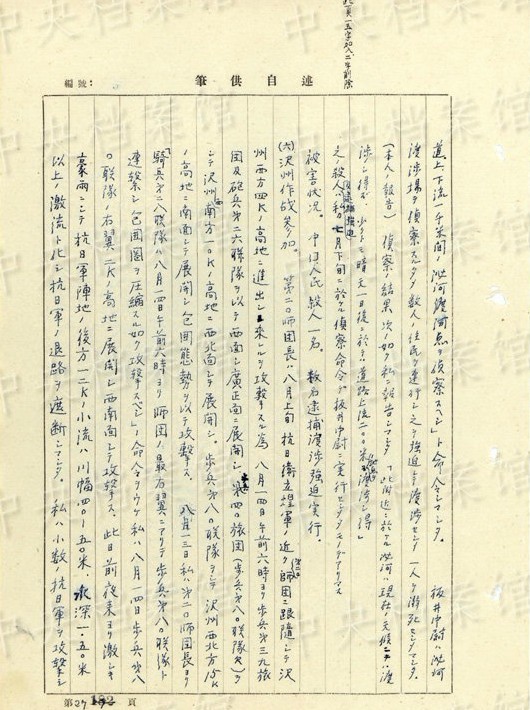 此頁一五字加ヘ二字削除
編號：
述自供筆
道上下流一千米間ノ沁河渡河点ヲ偵察スベシ」ト命令シマシタ。 板井中尉ハ沁河
渡渉場ヲ偵察スルタメ数人ノ住民ヲ連行シ之ヲ強迫シ渡渉セシメ一人ヲ溺死セシメマシタ。
（本人ノ報告） 偵察ノ結果次ノ如ク私ニ報告シマシタ「此附近ニ於ケル沁河ハ現在ノ天候ニテハ渡
渉シ得ズ 少クトモ晴天一日後ニ於テハ道路上流二〇〇米ハ渡渉シ得」
之ノ殺人ハ私ガ七月下旬ニ於ケル偵察命令デ板井中尉ニ実行セシメタモノデアリマス
被害状況。 中国人民殺人一名。 数名逮捕渡渉強迫実行。
(六)沢州作戦参加。 第二〇師団長ハ八月上旬抗日衛立煌軍ノ近ク師団ニ跟随シテ沢
州西方四Kノ高地ニ進出シ来ルヲ攻撃スル為 八月一四日午前六時ヨリ歩兵第三九旅
団及砲兵第二六聯隊ヲ以テ西面シ廣正面ニ展開シ 第四〇旅団（歩兵第八〇聯隊欠）ヲ
シテ沢州西南方一〇Kノ高地ニ西北面シテ展開シ。 歩兵第八〇聯隊ヲシテ沢州西北方15K
ノ高地ニ南面シテ展開シ包囲態勢ヲ以テ攻撃ス。 八月一三日私ハ第二〇師団長ヨリ
「騎兵第二八聯隊ハ八月一四日午前六時ヨリ師団ノ最右翼ニアリテ歩兵第八〇聯隊ト
連繋シ包囲圏ヲ圧縮スル如ク攻撃スベシ」ノ命令ヲウケ 私ハ八月一四日歩兵第八
〇聯隊ノ右翼二Kノ高地ニ展開シ西南面シテ攻撃ス。 此日前夜来ヨリ激シキ
豪雨ニシテ抗日軍陣地ノ後方一二Kノ小流ハ川幅四〇－五〇米、水深一・五〇米
以上ノ激流ト化シ抗日軍ノ退路ヲ遮断シマシタ。 私ハ小数ノ抗日軍ヲ攻撃シ
第 27 頁